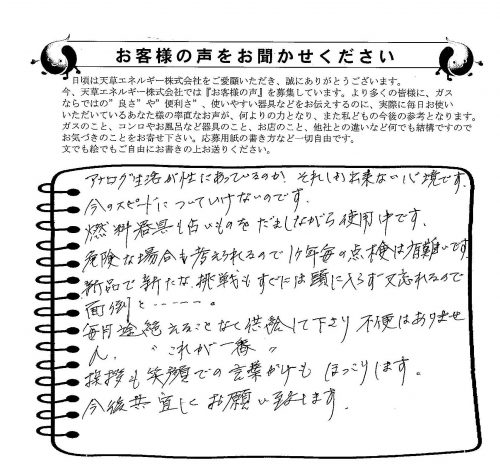 お客様の声をお聞かせください
日頃は天草エネルギー株式会社をご愛顧いただき、誠にありがとうございます。
今、天草エネルギー株式会社では『お客様の声』を募集しています。より多くの皆様に、ガス
ならではの”良さ”や”便利さ”、使いやすい器具などをお伝えするのに、実際に毎日お使い
いただいているあなた様の率直なお声が、何よりの力となり、また私どもの今後の参考となります。
ガスのこと、コンロやお風呂など器具のこと、お店のこと、他社との違いなど何でも結構ですので
お気づきのことをお寄せ下さい。応募用紙の書き方など一切自由です。
文でも絵でもご自由にお書きの上お送りください。
アナログ生活が性にあっているのか それしか出来ない心境です。
今のスピードについていけないのです。
燃料器具も古いものをだましながら使用中です。
危険な場合も考えられるので1ヶ年毎の点検は有難いです
新品で新たな挑戦もすぐには頭に入らず又忘れるので
面倒と……。
毎月途絶えることなく供給して下さり不便はありませ
ん. "これが一番"
挨拶も笑顔での言葉がけも ほっこりします。
今後共宜しくお願い致します.